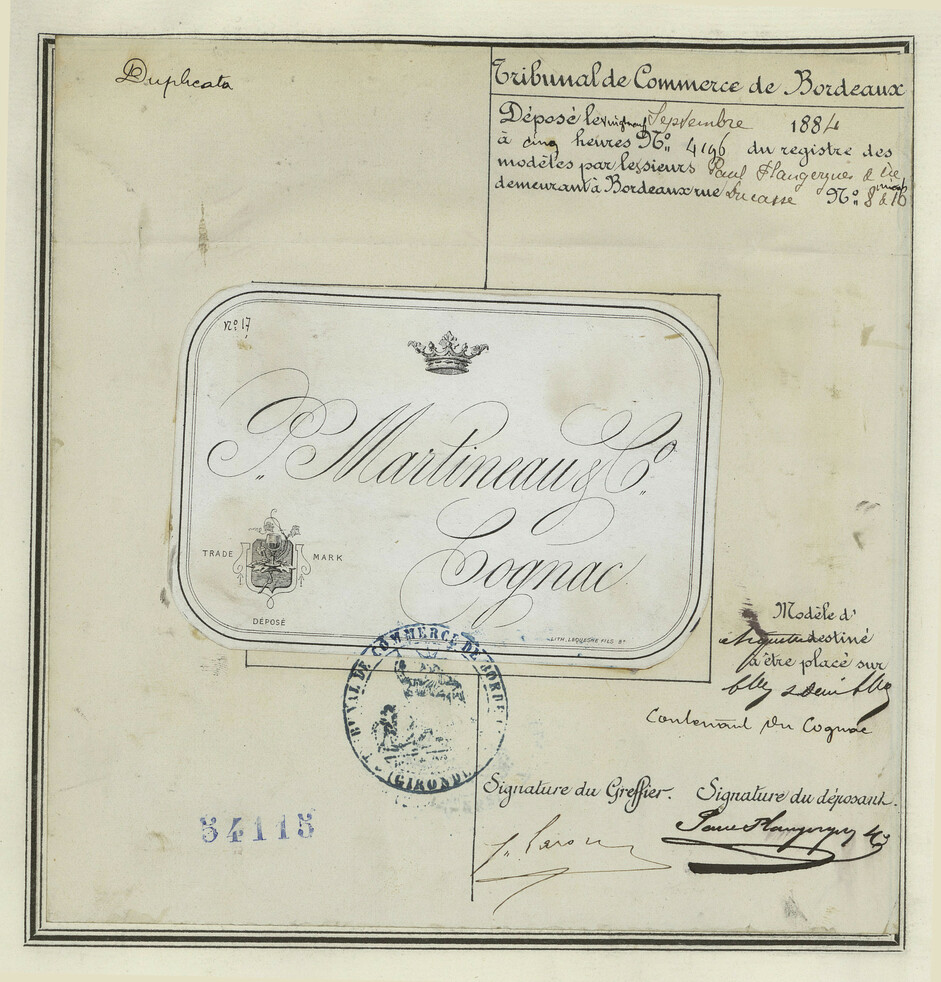 Duplicata
Tribunal de Commerce de Bordeaux
Déposé le vingt neuf Septembre 1884
à cinq heures No. 4196 du registre des
modèles par les sieurs Paul Flangergues & Cie
demeurant à Bordeaux rue Ducasse No. 8 à 16
No. 17
P. Martineau & Co.
Cognac
TRADE MARK
DÉPOSÉ
LITH. LEQUESNE FILS. Bx
Modèle d'
étiquette destiné
à être placé sur
blles & demi blles
Contenant du Cognac
TRIBUNAL DE COMMERCE DE BORDEAUX
(GIRONDE)
54115
Signature du Greffier. Signature du déposant.
Paul Flangergues & Cie